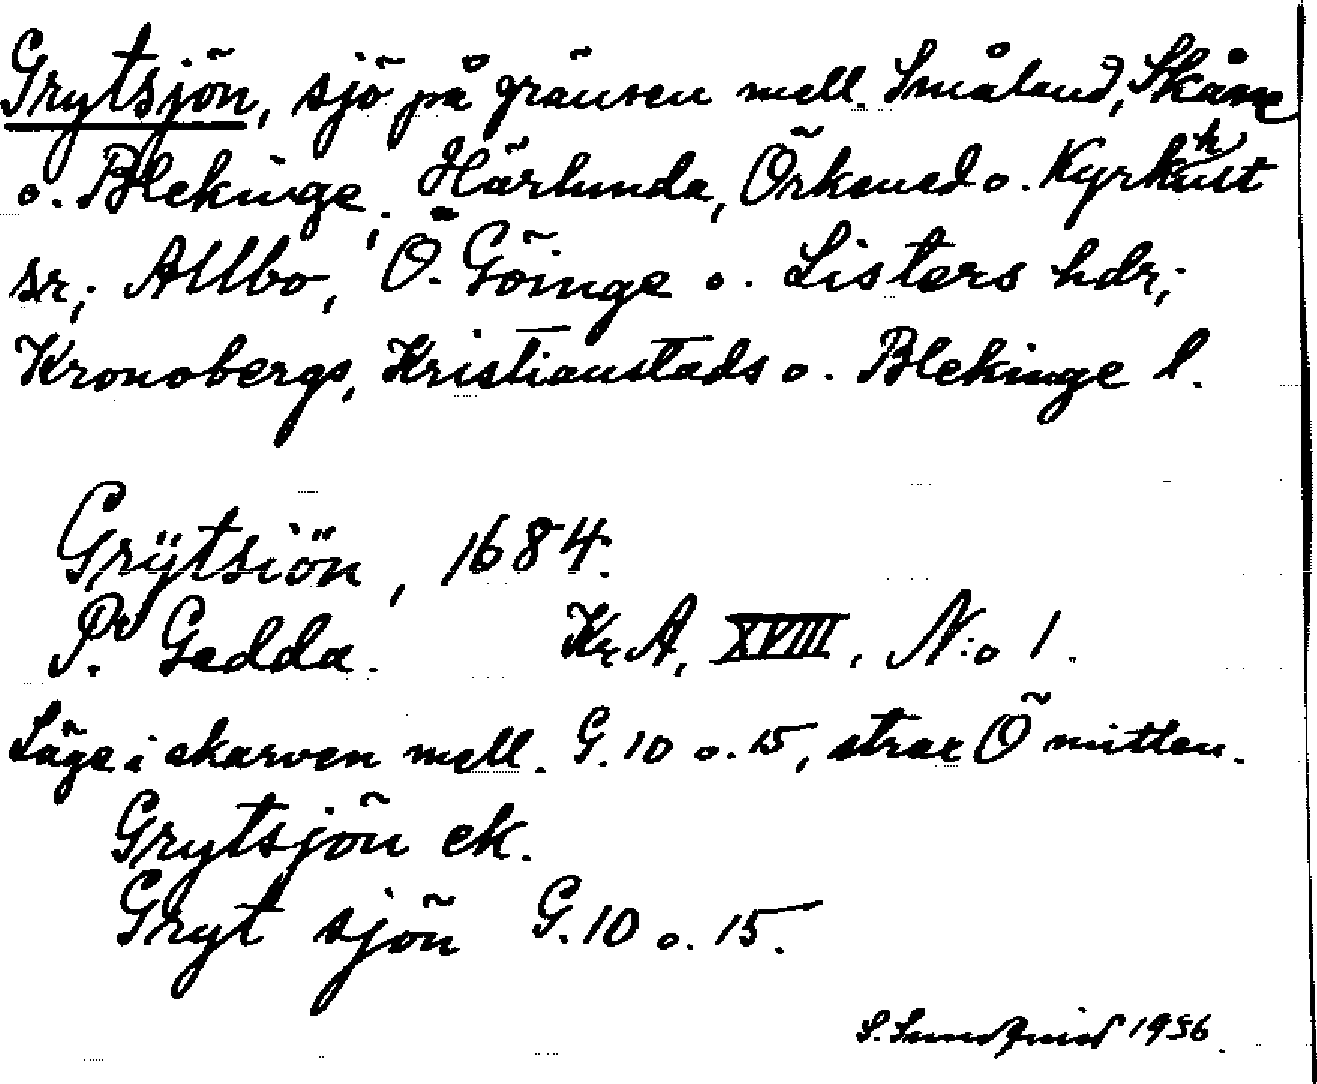 Grytsjön, sjö på gränsen mell. Småland, Skåne
o. Blekinge; Härlunda, Örkened o. Kyrkhult
sr; Allbo, Ö. Göinge o. Listers hdr;
Kronobergs, Kristianstads o. Blekinge l.
Grÿtsiön, 1684.
Pr Gedda. KrA, XVIII, N:o 1.
Läge i skarven mell. G. 10 o. 15, strax Ö mitten.
Grytsjön ek.
Gryt sjön G. 10 o. 15.
S. Sundquist 1936